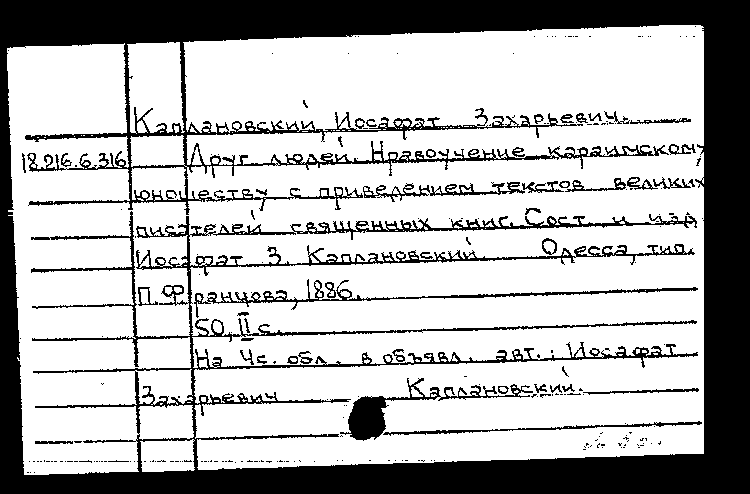 Каплановский, Иосафат Захарьевич.
18.216.6.316 Друг людей. Нравоучение караимскому
юношеству с приведением текстов великих
писателей священных книг. Сост. и изд.
Иосафат З. Каплановский. Одесса, тип.
П. Францова, 1886.
50, II с.
На 4 с. обл. в объявл. авт.: Иосафат
Захарьевич Каплановский.